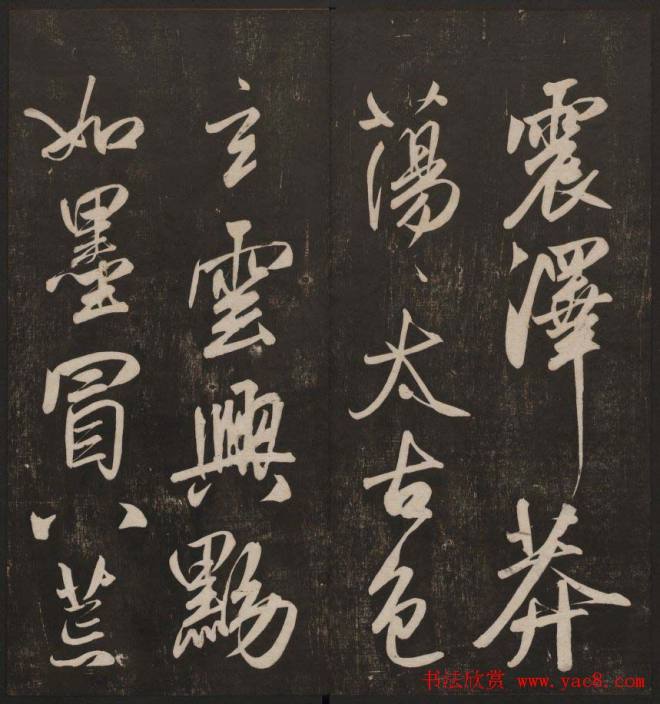 震澤莽
蕩〻太古色
玄雲興
如墨冒八荒
书法欣赏 www.yac8.com